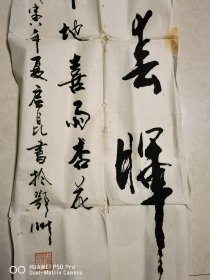 春暉
地喜雨杏花
寅八年夏启昆書於鄂州
HUAWEI P50 Pro
Dual-Matrix Camera